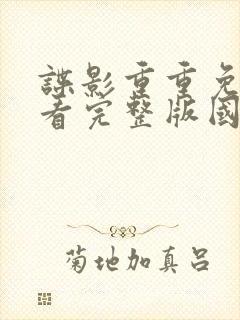 諜影重重免
看完整版國
菊地加真呂